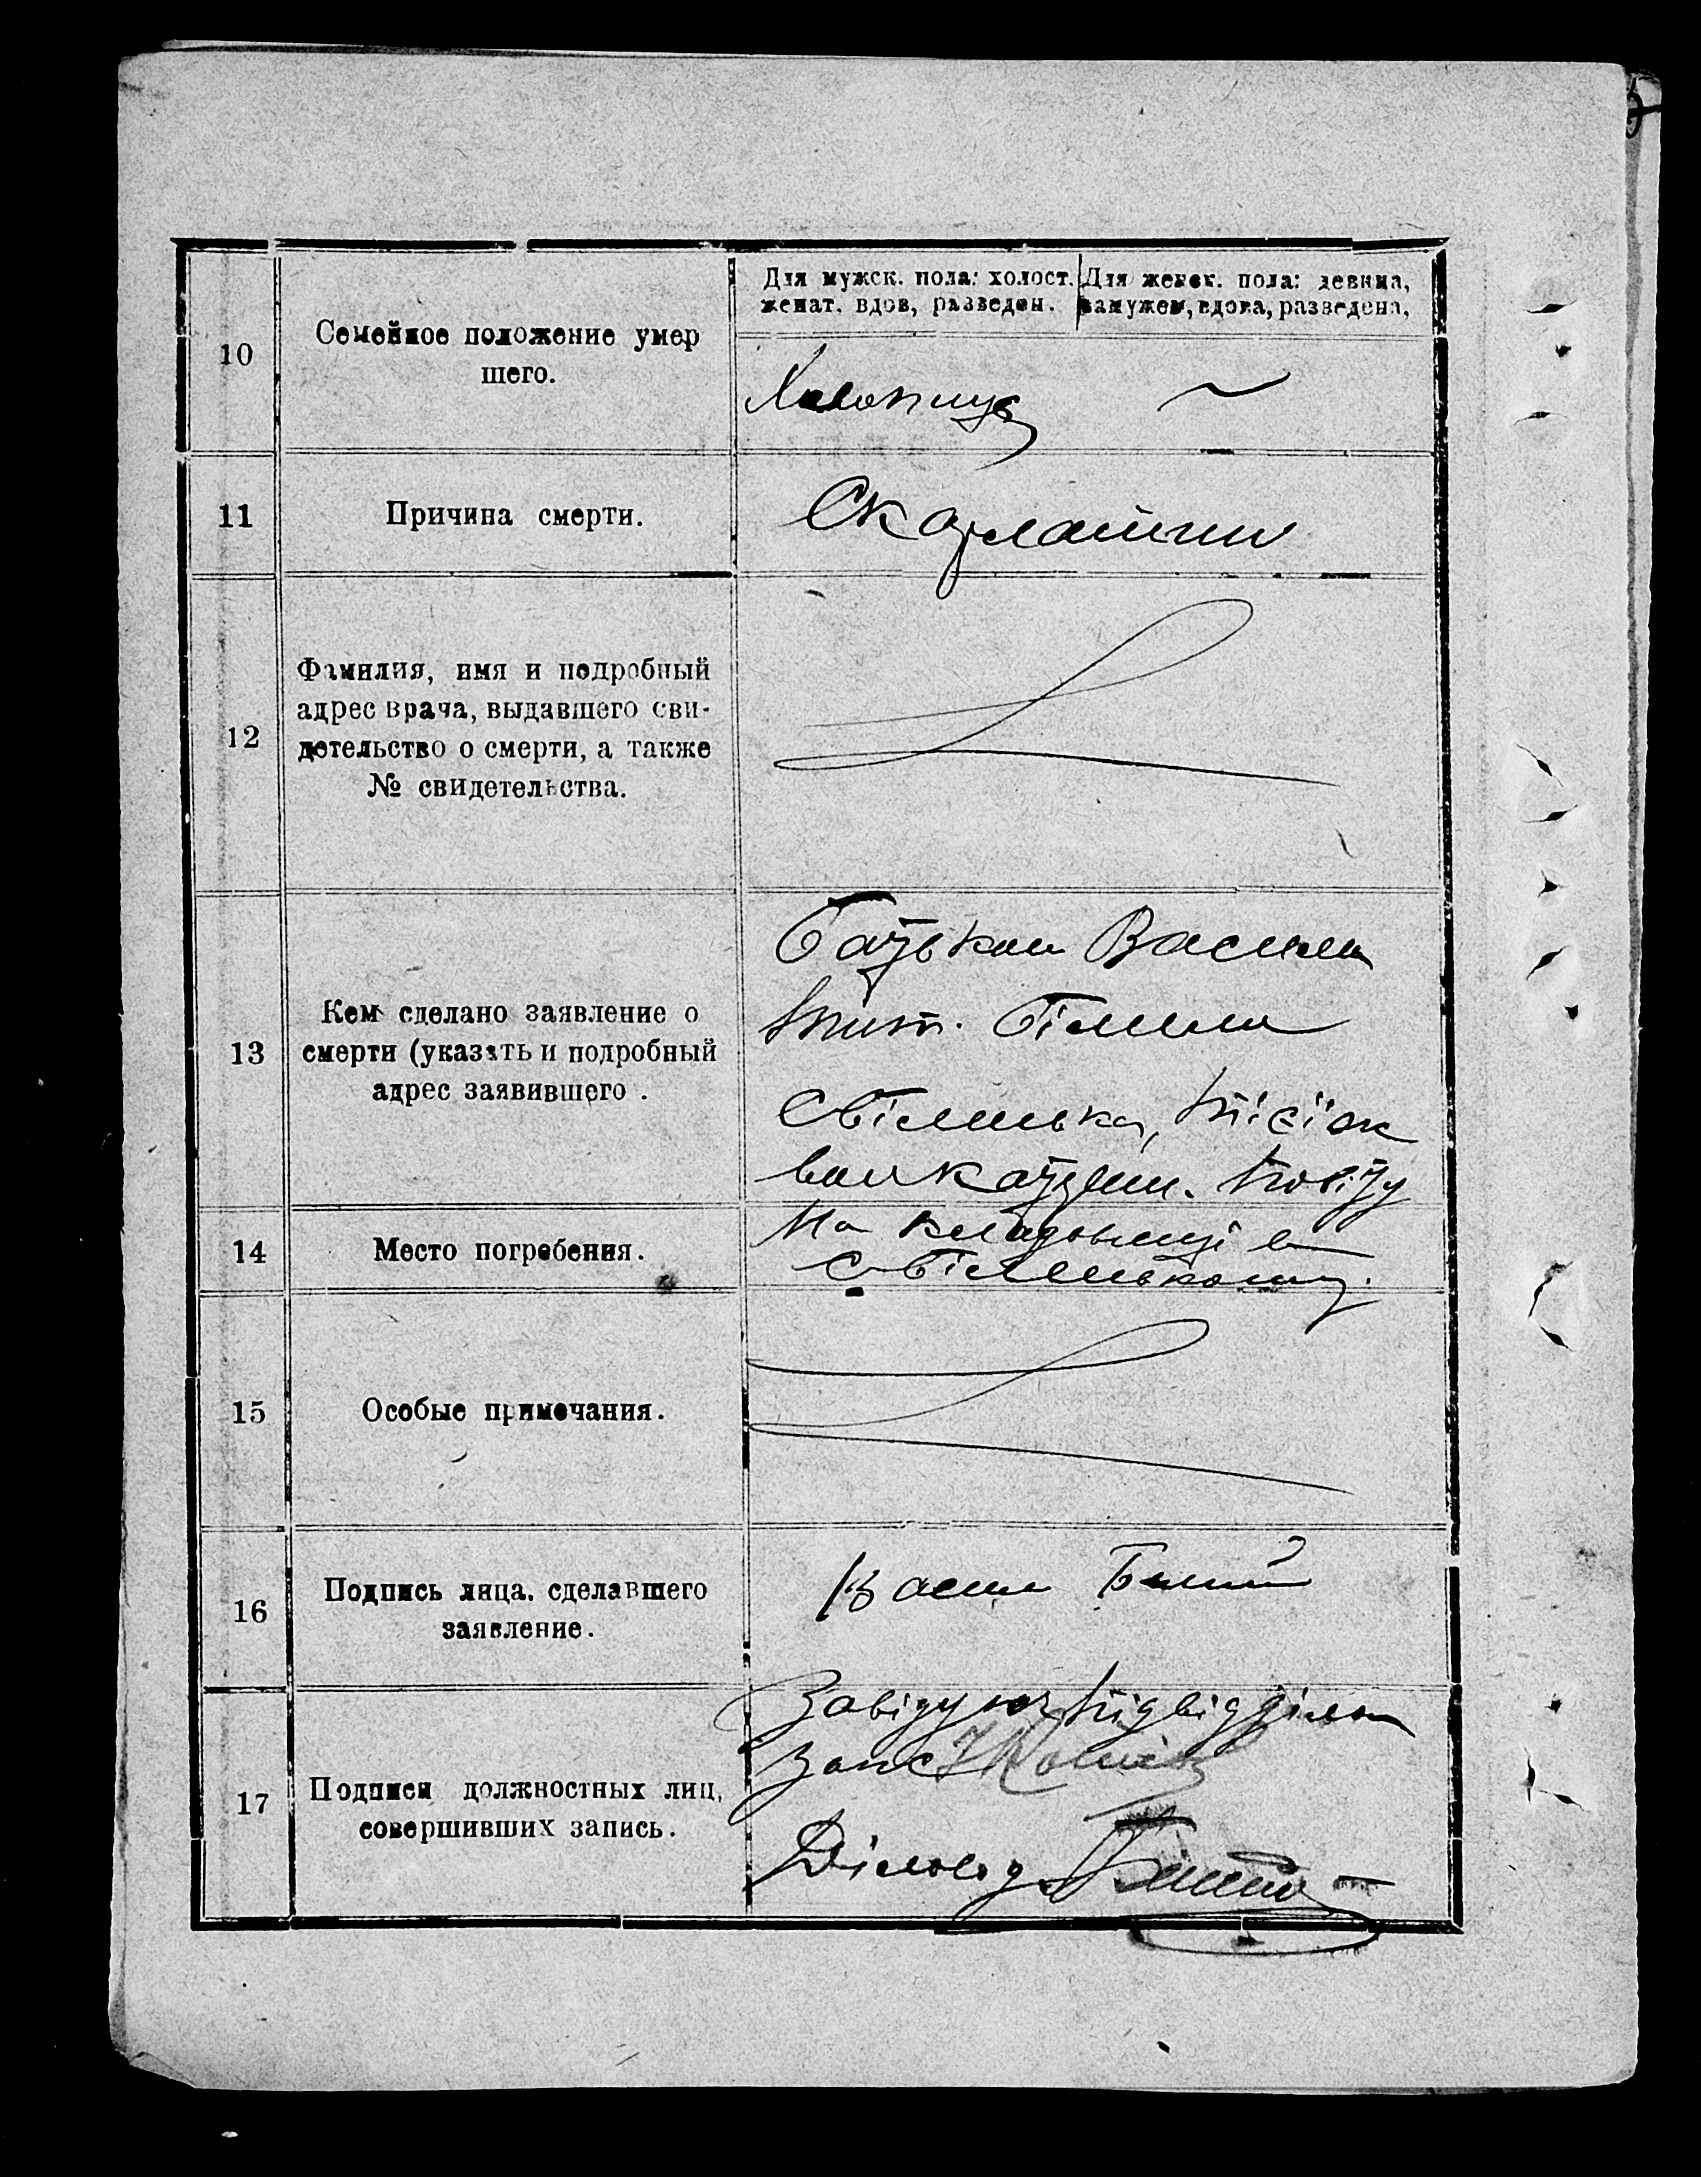 10
Семейное положение умер
шего.
Для мужск. пола: холост.
женат. вдов, разведен.
Для женск. пола: девица,
замужем, вдова, разведена,
11
Причина смерти.
Скарлатини
12
Фамилия, имя и подробный
адрес врача, выдавшего сви-
детельство о смерти, а также
№ свидетельства.
13
Кем сделано заявление о
смерти (указать и подробный
адрес заявившего .
Батьком Василем
Білим
Світлинька,
повіту
14
Место погребения.
На кладовищі в
15
Особые примечания.
16
Подпись лица. сделавшего
заявление.
Васил Билий
17
Подписи должностных лиц,
совершивших запись.
Завідуюч підвідділом
Запс
Діловод